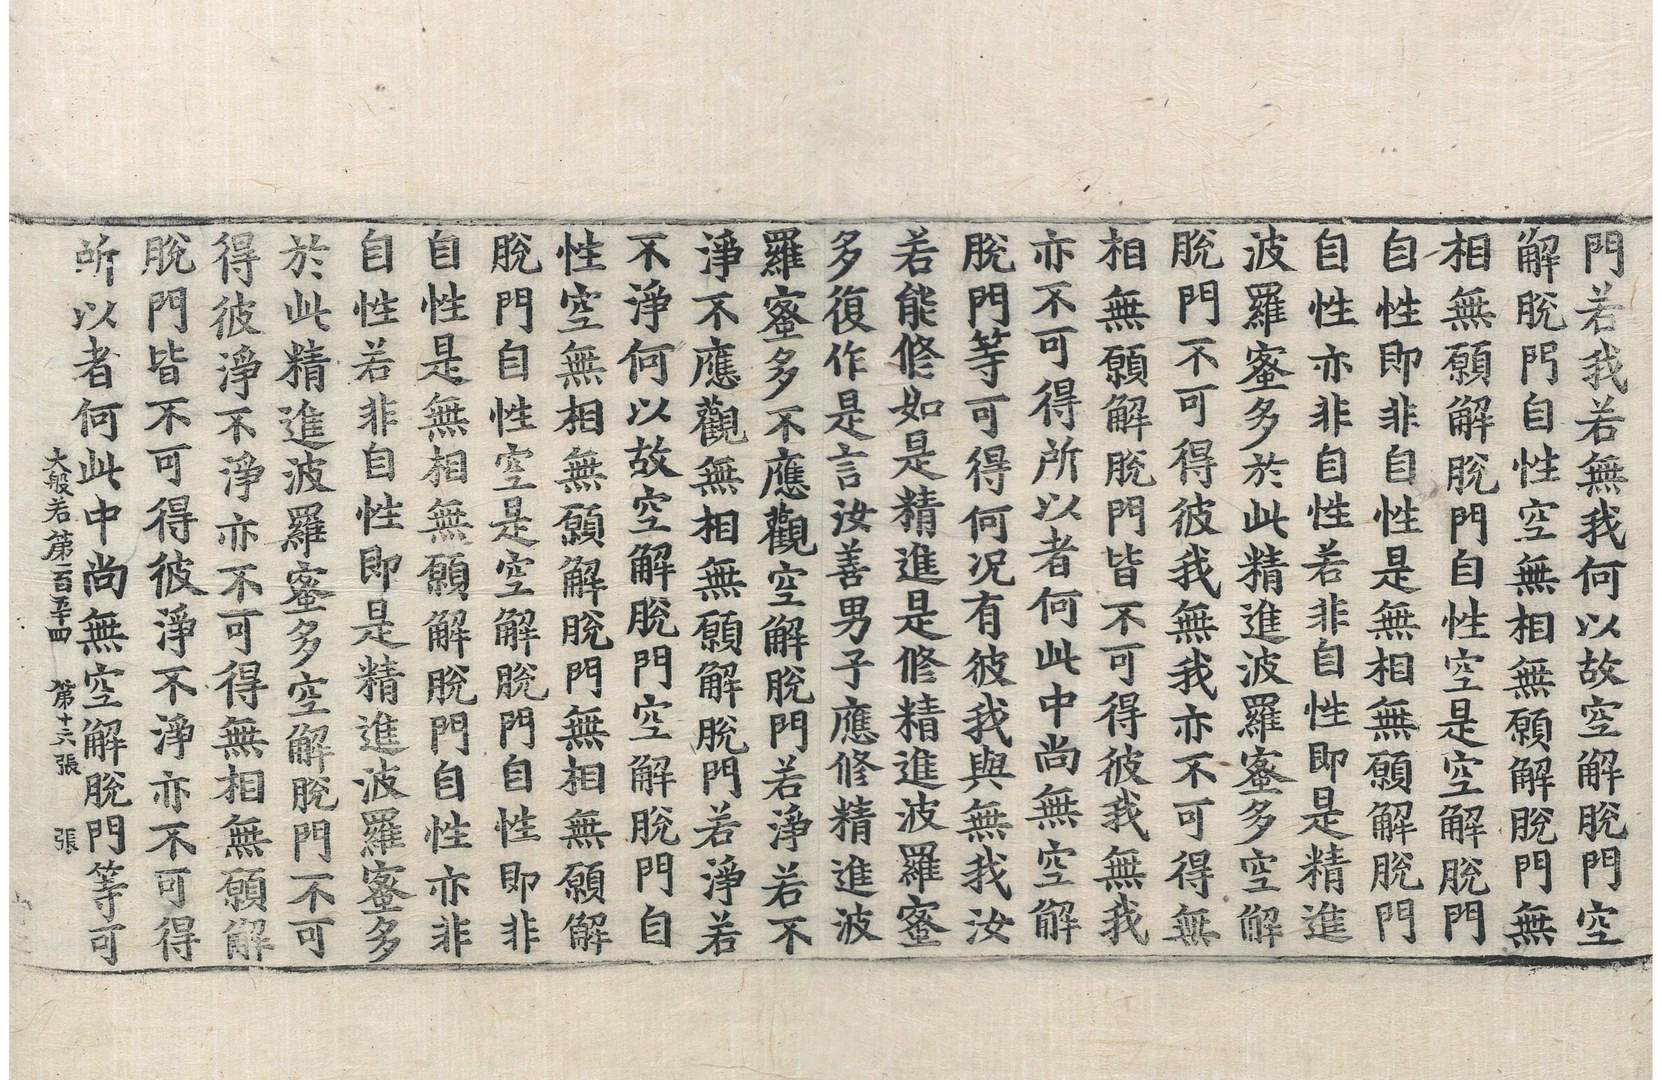 門若我若無我何以故空解脫門空
解脫門自性空無相無願解脫門無
相無願解脫門自性空是空解脫門
自性即非自性是無相無願解脫門
自性亦非自性若非自性即是精進
波羅蜜多於此精進波羅蜜多空解
脫門不可得彼我無我亦不可得無
相無願解脫門皆不可得彼我無我
亦不可得所以者何此中尚無空解
脫門等可得何况有彼我與無我汝
若能修如是精進是修精進波羅蜜
多復作是言汝善男子應修精進波
羅蜜多不應觀空解脫門若淨若不
淨不應觀無相無願解脫門若淨若
不淨何以故空解脫門空解脫門自
性空無相無願解脫門無相無願解
脫門自性空是空解脫門自性即非
自性是無相無願解脫門自性亦非
自性若非自性即是精進波羅蜜多
於此精進波羅蜜多空解脫門不可
得彼淨不淨亦不可得無相無願解
脫門皆不可得彼淨不淨亦不可得
所以者何此中尚無空解脫門等可
大般若第一百五十四 第十六張 張